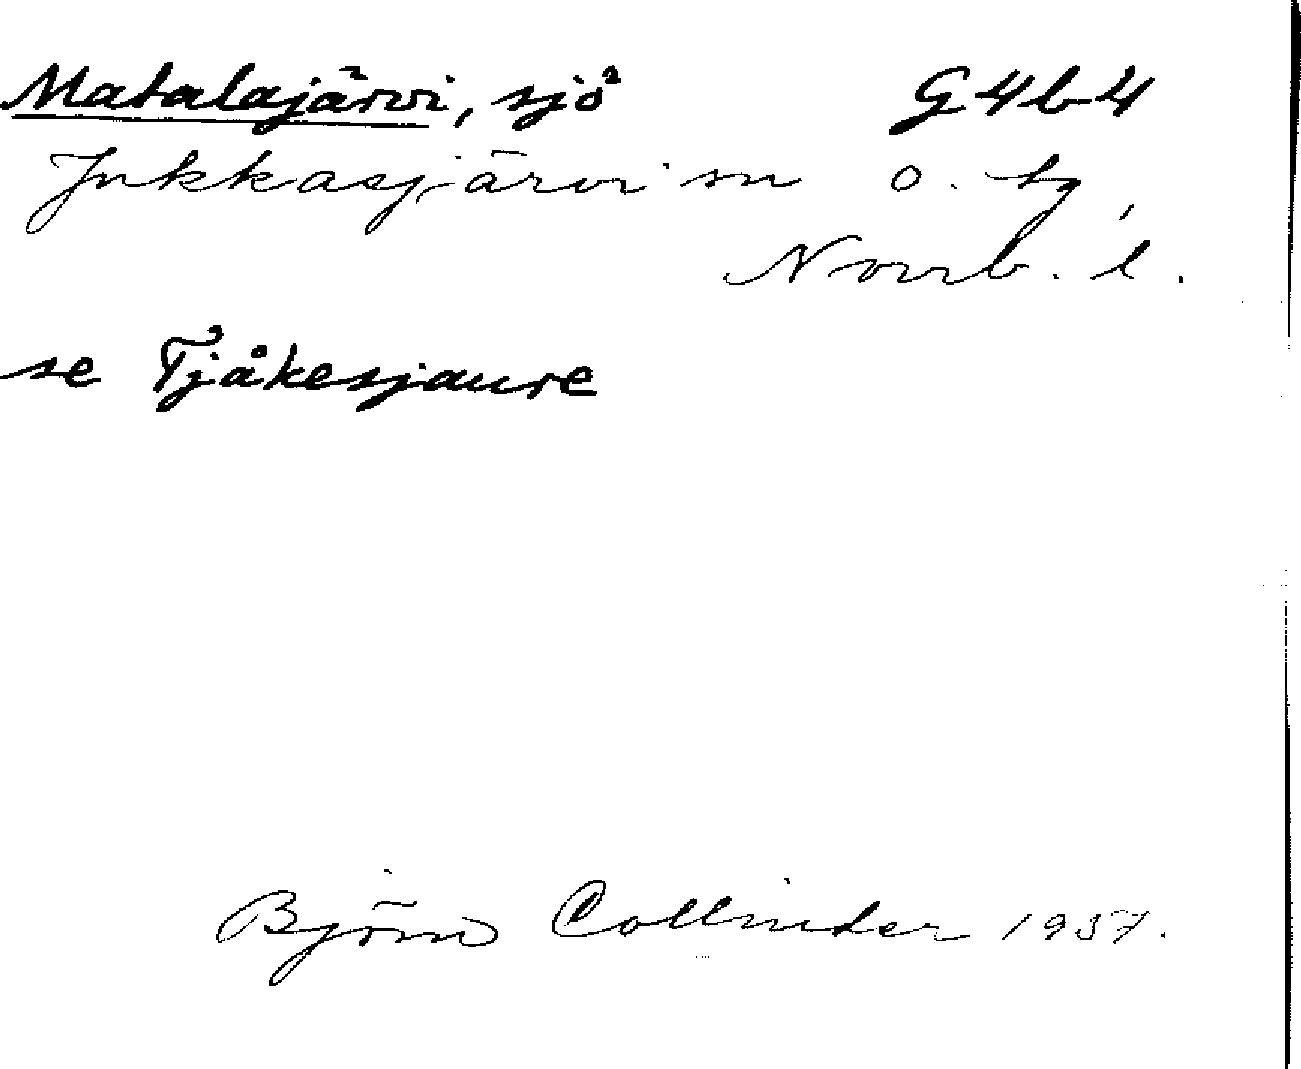 Matalajärvi, sjö G4b4
Jukkasjärvi sn o. tg,
Norrb. l.
se Tjåkesjaure
Björn Collinder 1957.